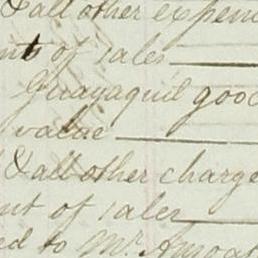 & all other expen
nt of sales
Guayaquil good
value
& all other charge
nt of sales
ed to Mr.